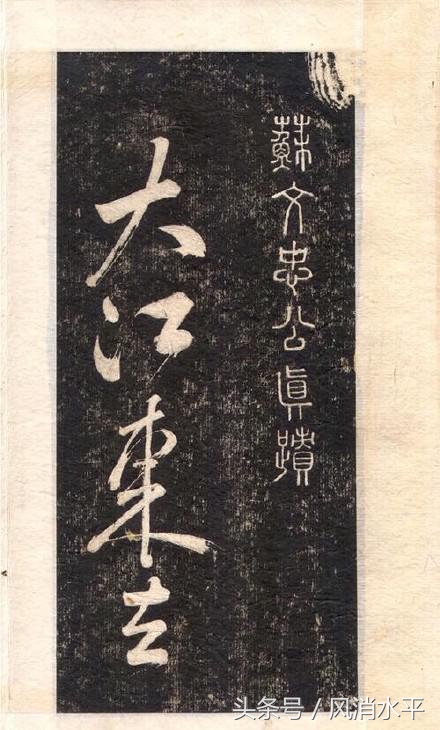 蘇文忠公真蹟
大江東去
头条号 / 风消水平